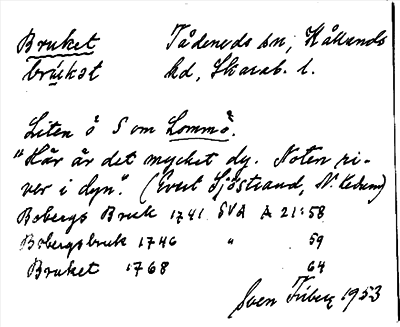 Bruket Tådeneds sn, Kållands
brúkət hd, Skarab. l.
Liten ö S om Lommö.
"Här är det mycket dy. Noten ri-
ver i dyn". (Evert Sjöstrand, N. Kedum)
Bobergs Bruk 1741 SVA A 21:58
Bobergsbruk 1746 " 59
Bruket 1768 64
Sven Friberg 1953